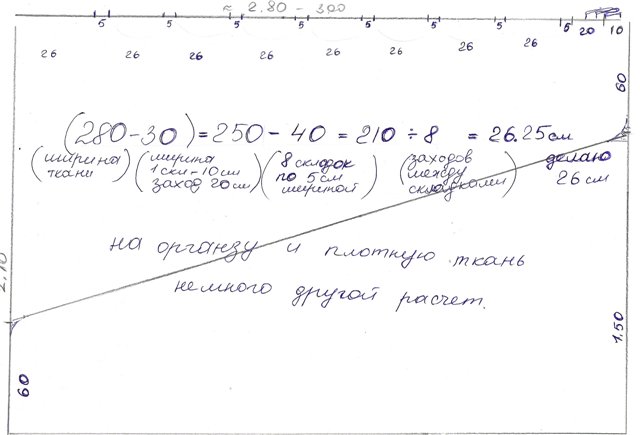 ≈ 2.80 - 300
5 5 5 5 5 5 5 5 20 10
26 26 26 26 26 26 26 26
60
(280-30) = 250 - 40 = 210 ÷ 8 = 26.25 см
(ширина ткани) (ширина 1 скл-10 см заход 20 см) (8 складок по 5 см шириной) (заходов между складками) делаю 26 см
на органзу и плотную ткань
немного другой расчет.
2.10
60
1,50